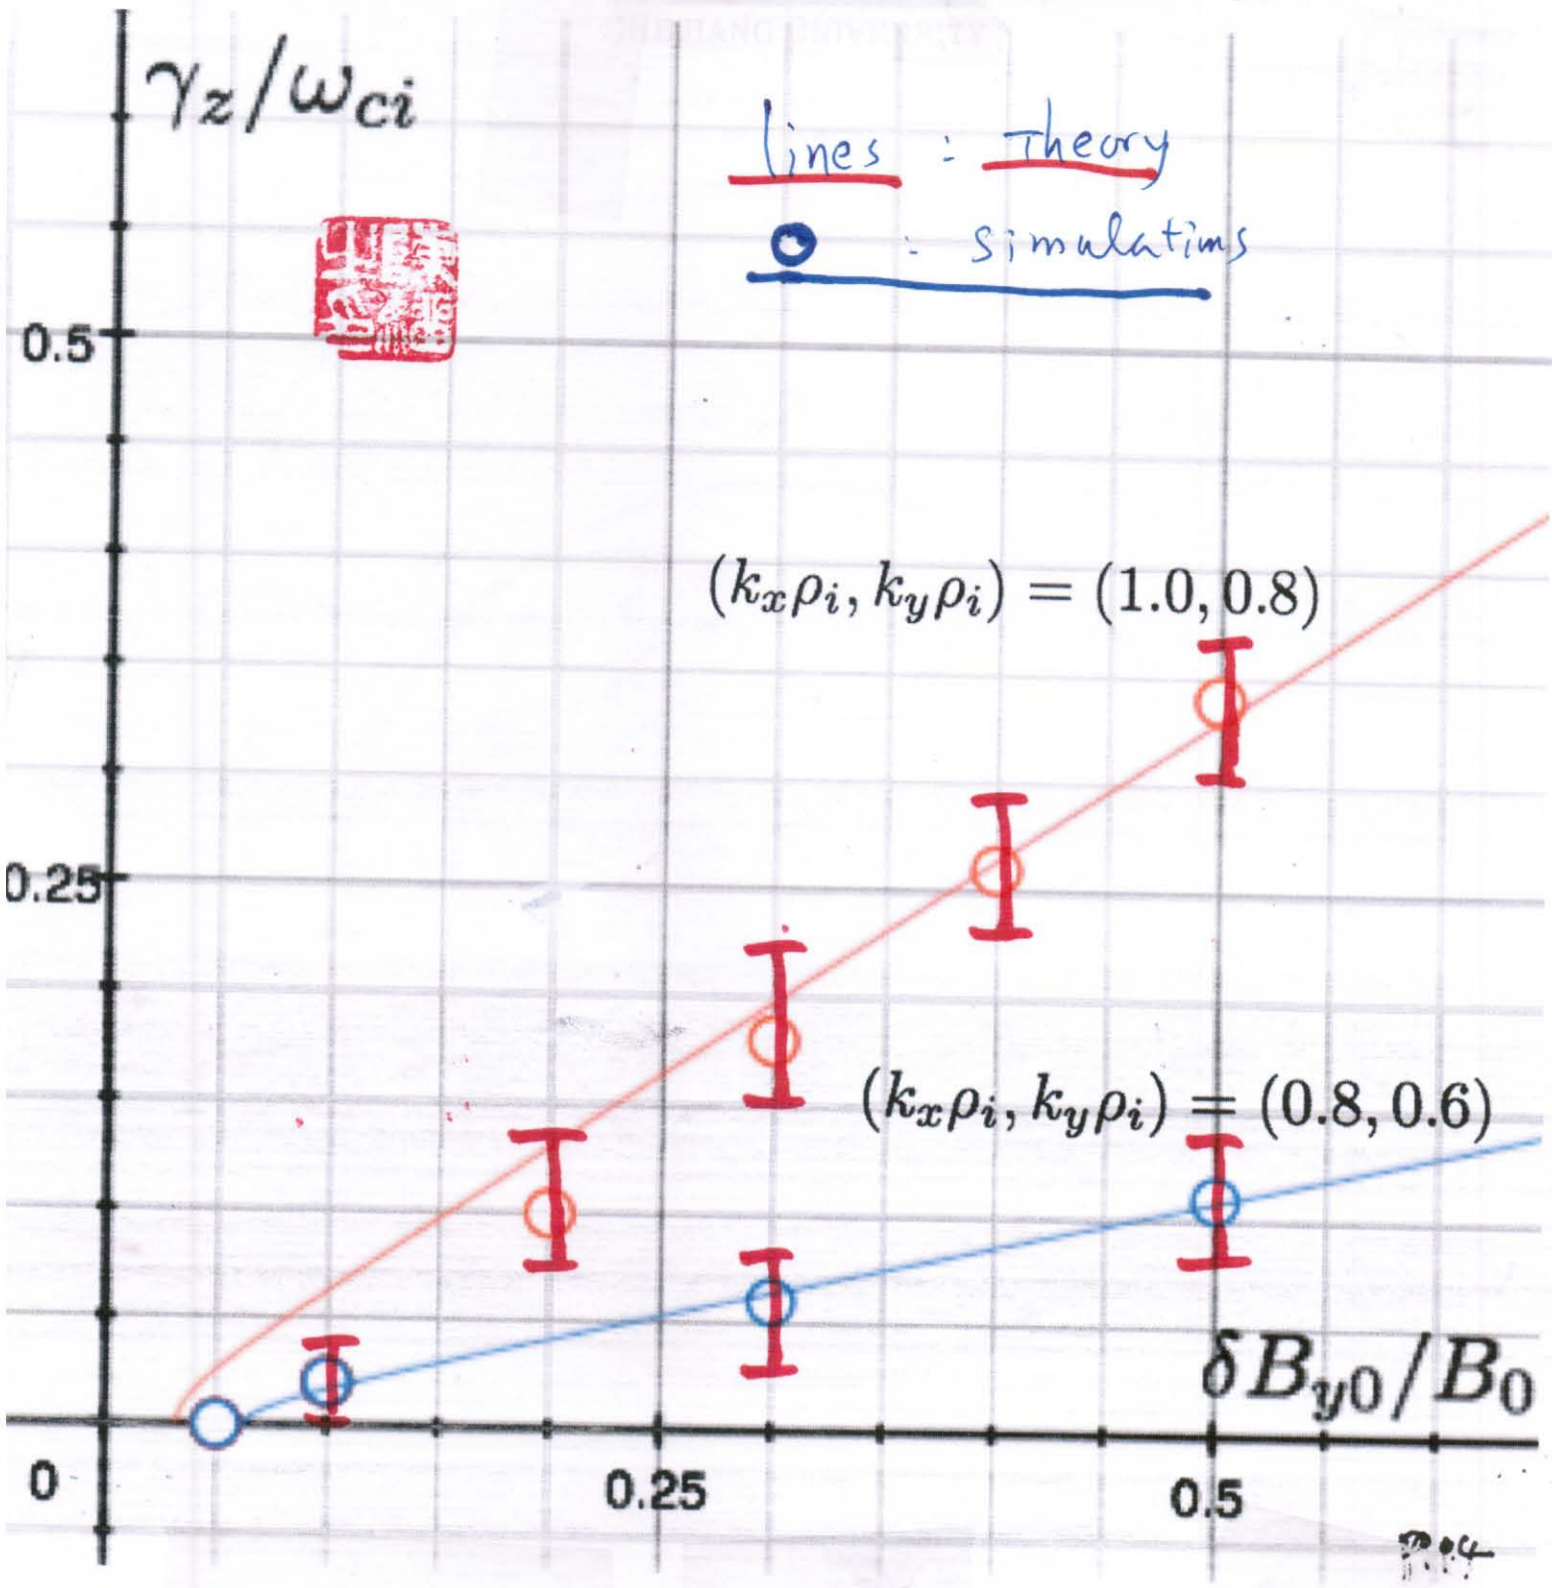 γz/ωci
lines : Theory
: simulations
0.5
(kxρi, kyρi) = (1.0, 0.8)
0.25
(kxρi, kyρi) = (0.8, 0.6)
δBy0/B0
0
0.25
0.5